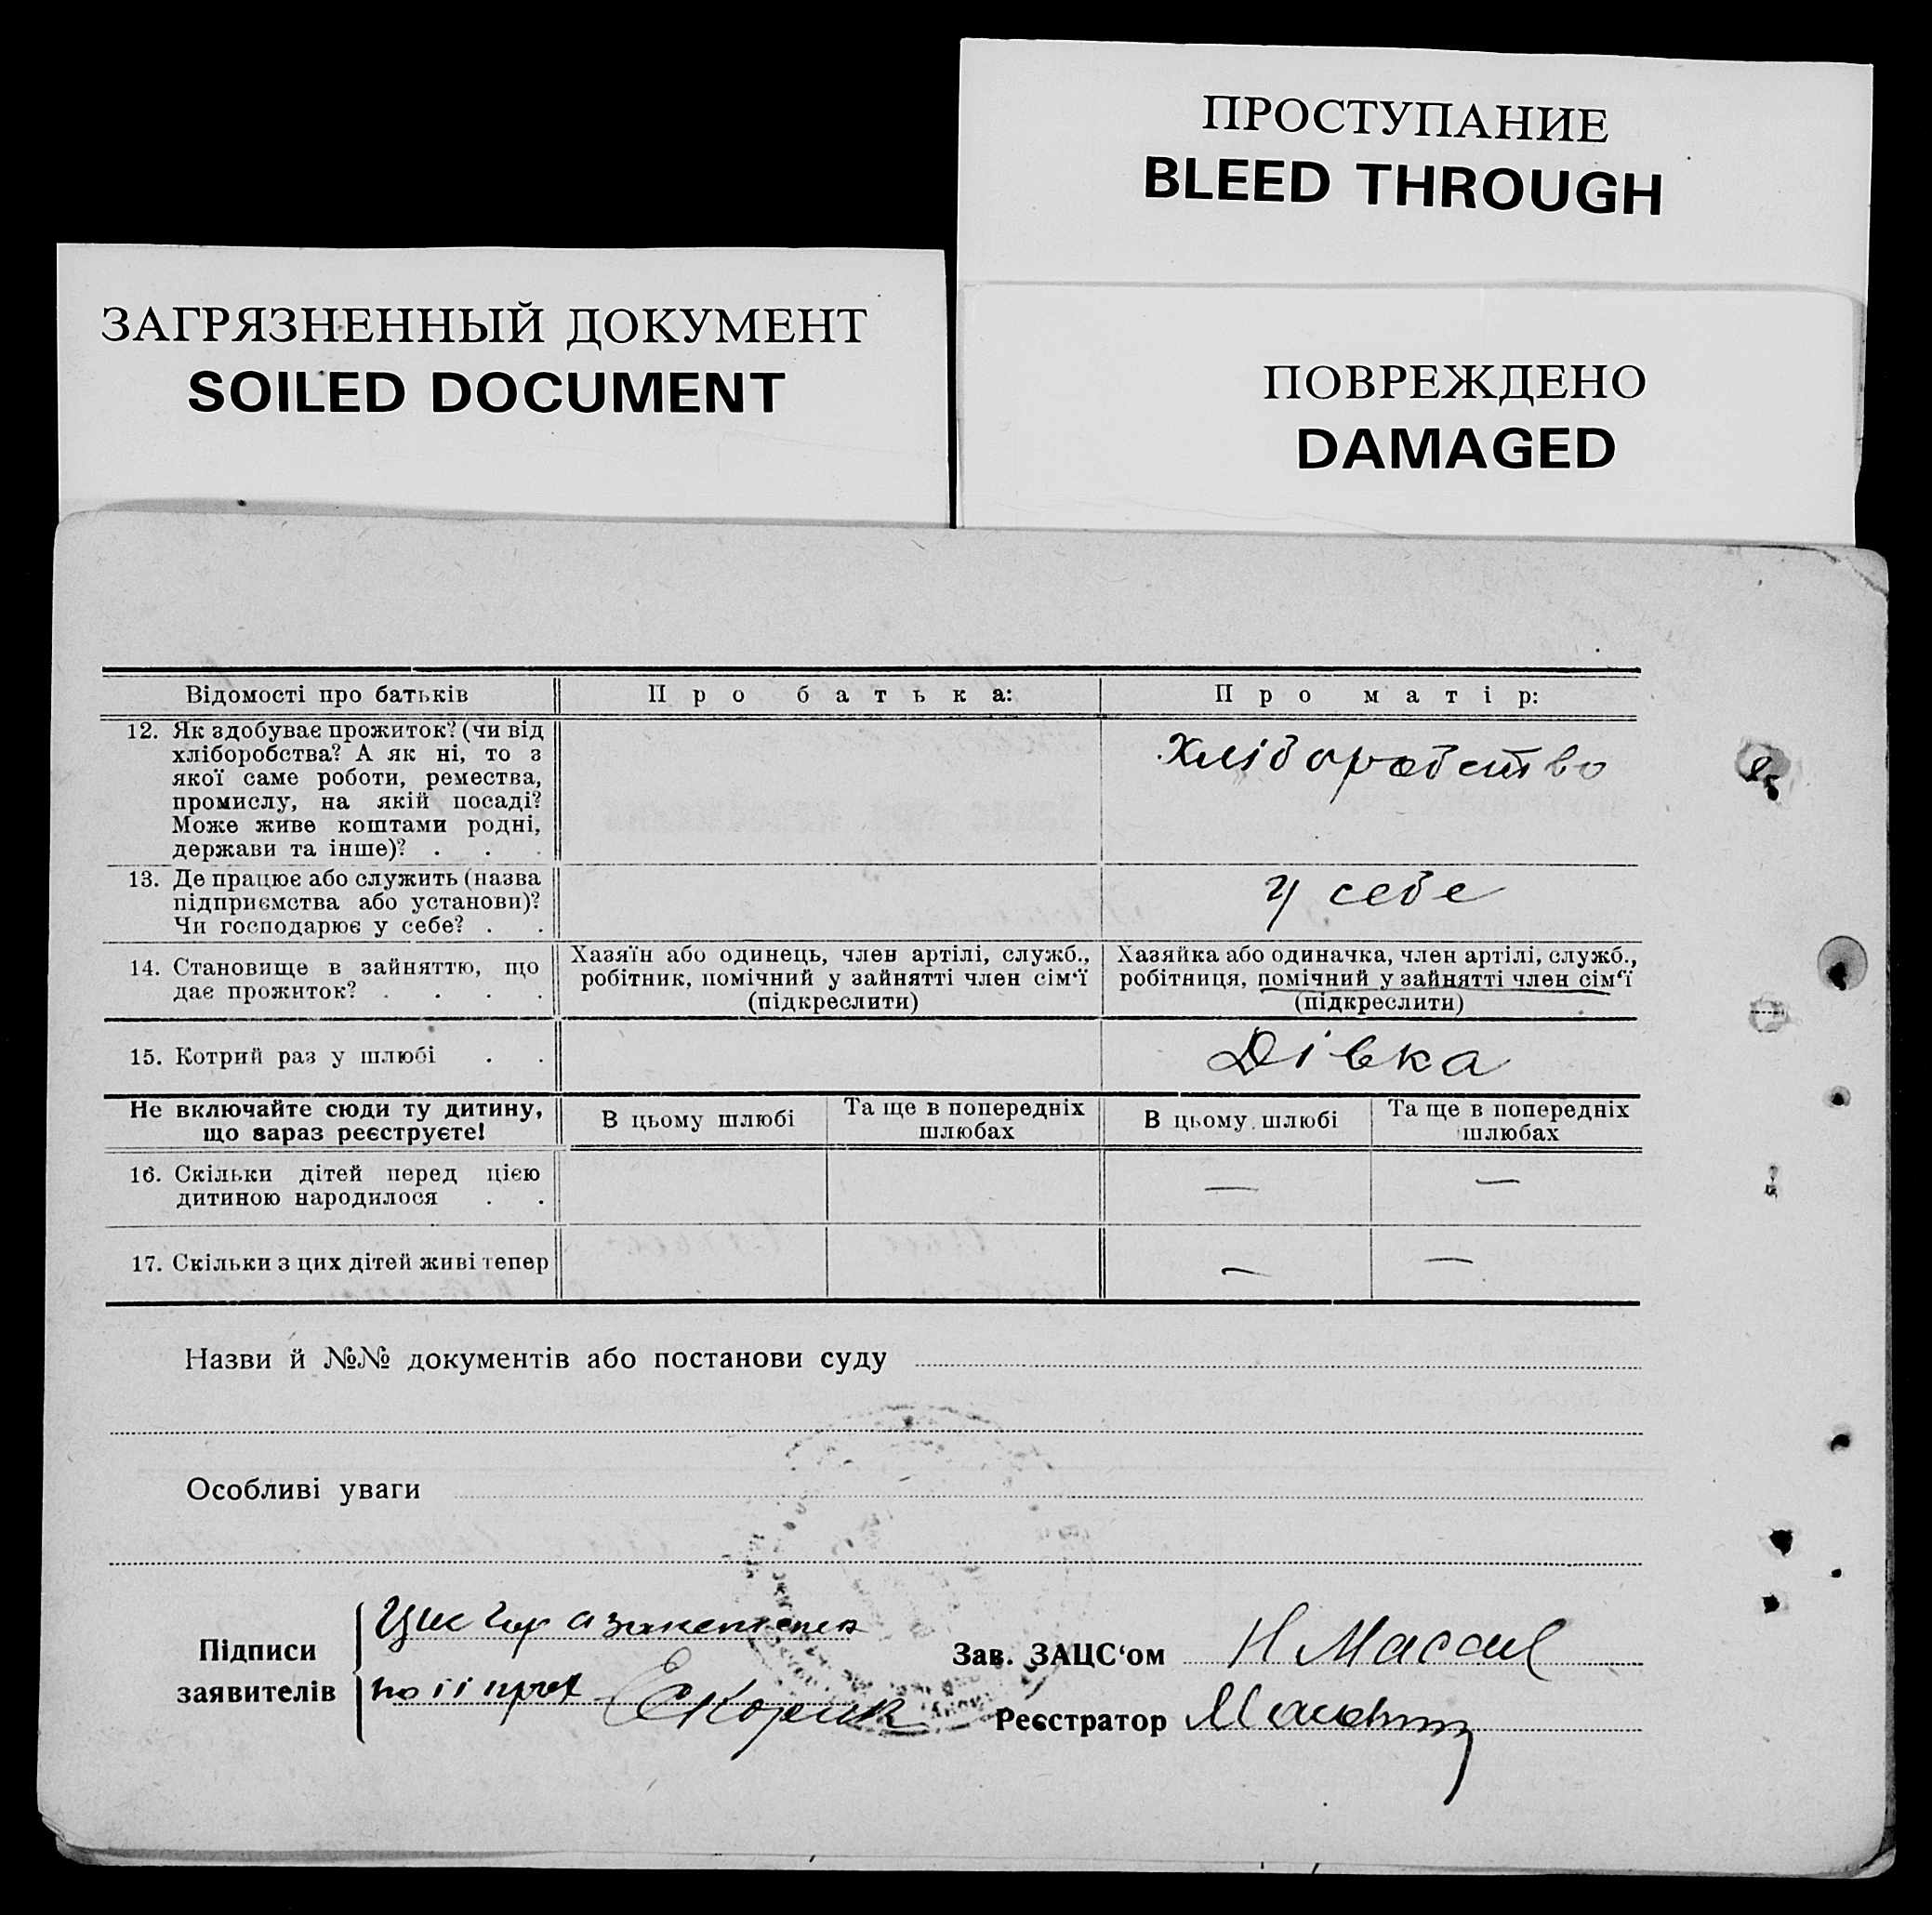 ПРОСТУПАНИЕ
BLEED THROUGH
ЗАГРЯЗНЕННЫЙ ДОКУМЕНТ
SOILED DOCUMENT
ПОВРЕЖДЕНО
DAMAGED
Відомості про батьків Про батька: Про матір:
12. Як здобуває прожиток? (чи від
хліборобства? А як ні, то з
якої саме роботи, ремества,
промислу, на якій посаді?
Може живе коштами родні,
держави та інше)? . . .
Хліборобство
13. Де працює або служить (назва
підприємства або установи)?
Чи господарює у себе? . .
у себе
14. Становище в зайняттю, що
дає прожиток? . . . .
Хазяїн або одинець, член артілі, служб.,
робітник, помічний у зайнятті член сім‘ї
(підкреслити)
Хазяйка або одиначка, член артілі, служб.,
робітниця, помічний у зайнятті член сім‘ї
(підкреслити)
15. Котрий раз у шлюбі . . Дівка
Не включайте сюди ту дитину,
що зараз реєструєте!
В цьому шлюбі
Та ще в попередніх
шлюбах
В цьому шлюбі
Та ще в попередніх
шлюбах
16. Скільки дітей перед цією
дитиною народилося . .
— —
17. Скільки з цих дітей живі тепер — —
Назви й №№ документів або постанови суду
Особливі уваги
Підписи
заявителів
по її
Зав. ЗАЦС‘ом
Реєстратор